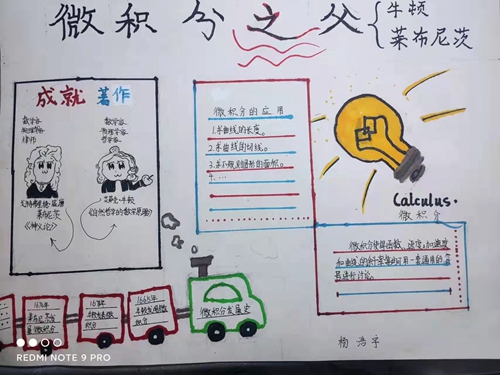 微积分之父
牛顿
莱布尼茨
成就 著作
数学家
物理学家
律师
数学家
物理学家
哲学家
莱布尼茨
《神义论》
艾萨克·牛顿
《自然哲学的数学原理》
微积分的应用
1.求曲线的长度。
2.求曲线的切线。
3.求不规则图形的面积。
4. …
Calculus.
微积分
微积分使得函数、速度、加速度
和曲线的斜率等均可用一套通用的符
号进行讨论。
1665年
微积分发展史
REDMI NOTE 9 PRO